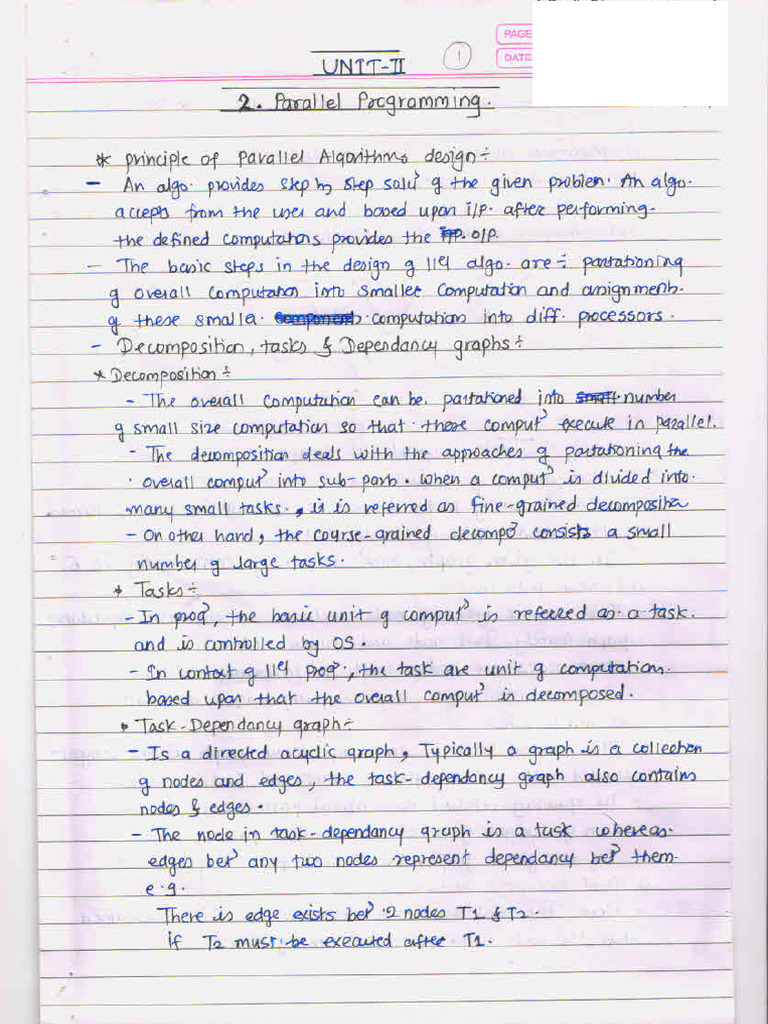 PAGE
DATE
UNIT-II
1
2. Parallel Programming.
* principle of Parallel Algorithms design÷
- An algo. provides step by step solun of the given problem. An algo.
accepts from the user and based upon i/p. after performing
the defined computations provides the o/p.
- The basic steps in the design of ||el algo. are÷ partationing
of overall computation into smaller computation and assignments.
of these smaller computation into diff. processors.
- Decomposition, tasks & Dependancy graphs÷
* Decomposition÷
- The overall computation can be partationed into number
of small size computation so that these computn execute in parallel.
- The decomposition deals with the approaches of partationing the
overall computn into sub-parts. when a computn is divided into
many small tasks, it is referred as fine-grained decomposition
- On other hand, the course-grained decompon consists a small
number of large tasks.
* Tasks÷
- In progn, the basic unit of computn is referred as a task.
and is controlled by OS.
- In context of ||el progn, the task are unit of computations.
based upon that the overall computn is decomposed.
• Task-Dependancy graph÷
- Is a directed acyclic graph, Typically a graph is a collection
of nodes and edges, the task-dependancy graph also contains
nodes & edges.
- The node in task-dependancy graph is a task whereas
edges betn any two nodes represent dependancy betn them.
e.g.
There is edge exists betn 2 nodes T1 & T2.
if T2 must be executed after T1.